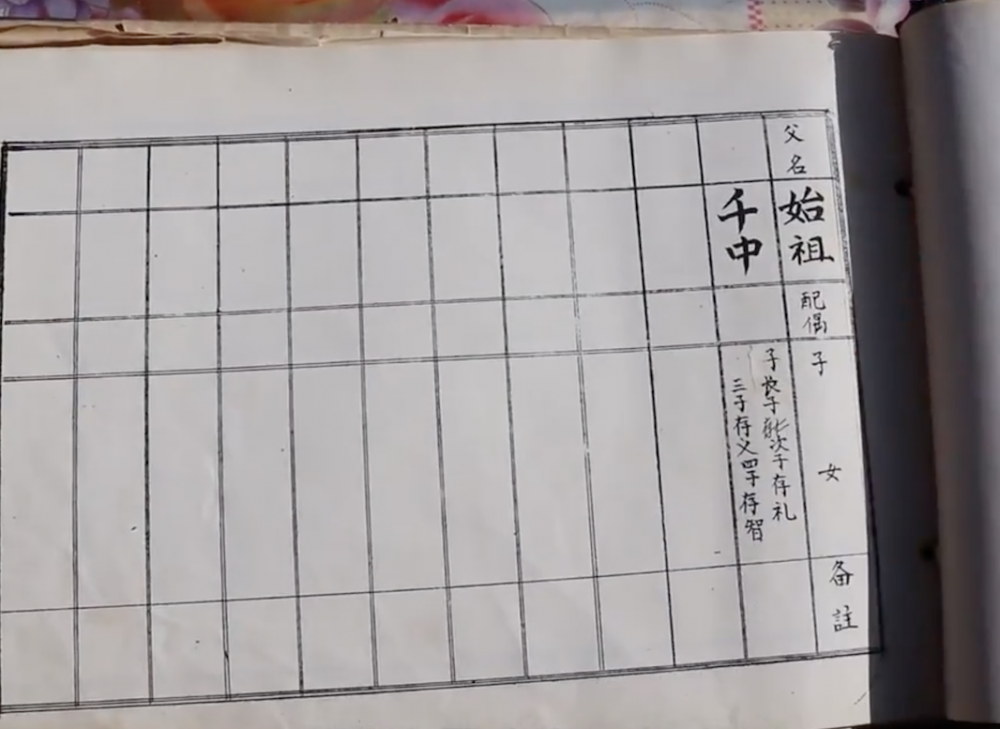 父名
始祖
配偶
子女
备註
千中
子 子 次子存礼
三子存义四子存智